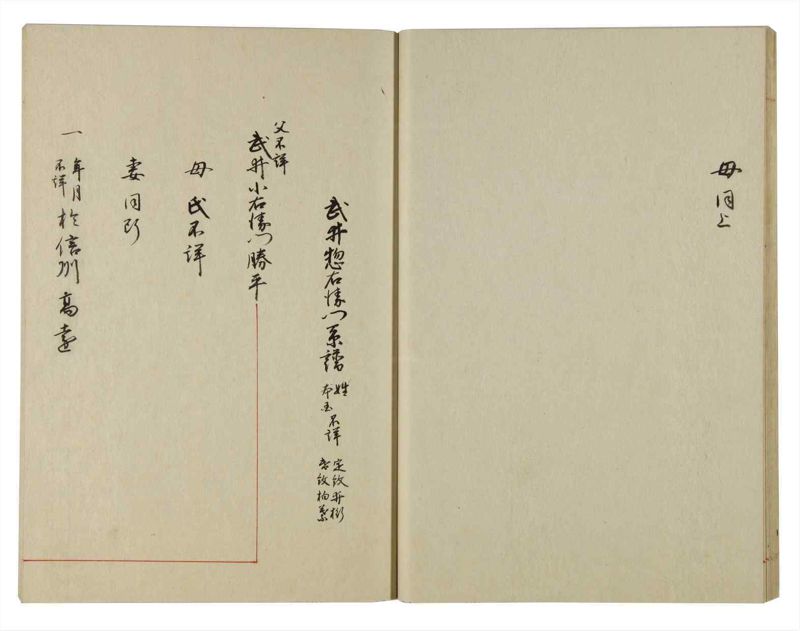 母同上
武井惣右衛門系譜 姓本国不詳 定紋井桁 替紋柏葉
父不詳
武井小右衛門勝平
母氏不詳
妻同断
一 年月不詳於信州高遠